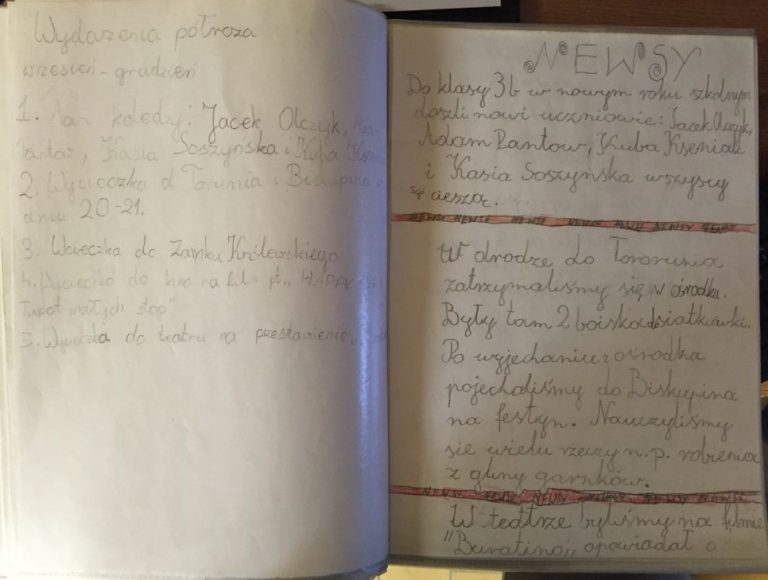 Wydarzenia półrocza
wrzesień - grudzień
1. koledzy: Jacek Olczyk,
Kasia Soszyńska i Kuba
2. Wycieczka d Torunia i Biskupina
dniu 20-21.
3. Wycieczka do Zamku Królewskiego
4. Wycieczka do kina na film pt. "HAPPY
Tupot małych stóp"
5. Wycieczka do teatru na przestawienie
NEWSY
Do klasy 3b w nowym roku szkolnym
doszli nowi uczniowie: Jacek Olczyk,
Adam Pantow, Kuba
i Kasia Soszyńska wszyscy
się cieszą.
NEWSY NEWSY NEWSY NEWSY NEWSY NEWSY NEWSY
W drodze do Tororunia
zatrzymaliśmy się w ośrodku.
Były tam 2 boiska do siatkówki.
Po wyjechaniu z ośrodka
pojechaliśmy do Biskupina
na festyn. Nauczyliśmy
się wielu rzeczy n.p. robienia
z gliny garnków.
NEWSY NEWSY NEWSY NEWSY NEWSY NEWSY
W teatrze byliśmy na filmie
"Buratino,, opowiadał o